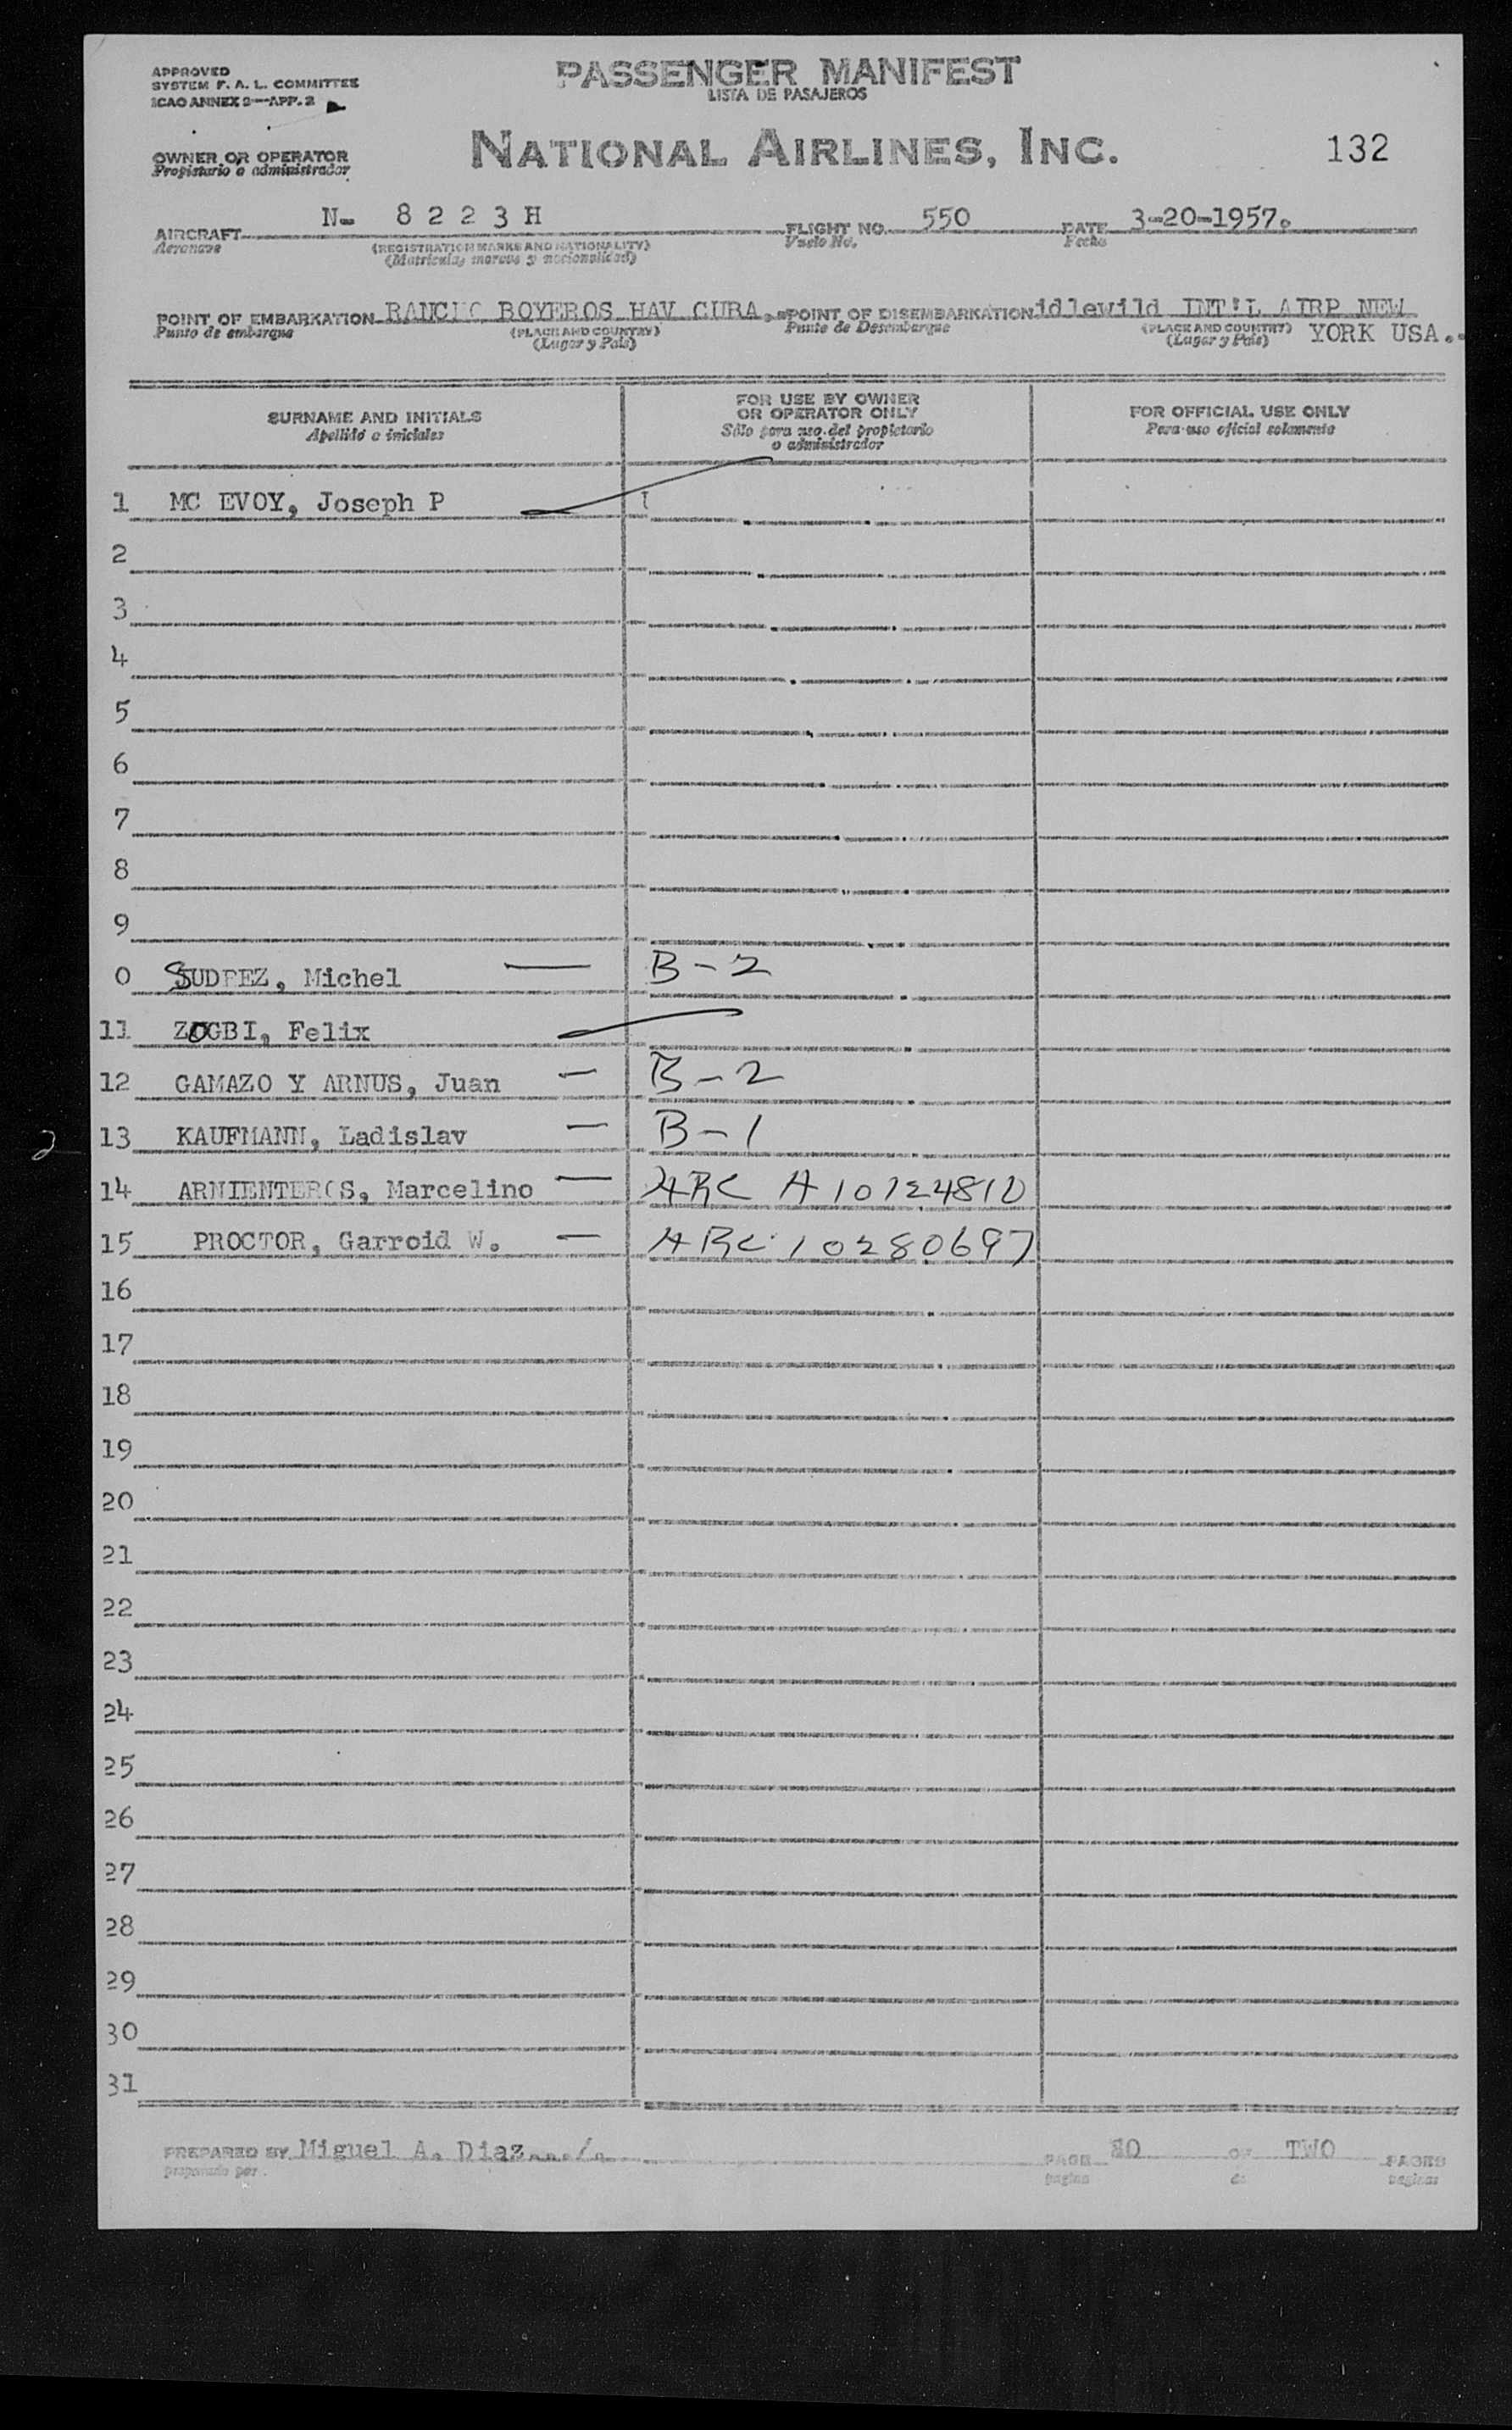 APPROVED
SYSTEM F. A. L. COMMITTEE
ICAO ANNEX 9—APP. 2
PASSENGER MANIFEST
LISTA DE PASAJEROS
OWNER OR OPERATOR
Propietario o administrador
NATIONAL AIRLINES, INC.
132
AIRCRAFT N- 8 2 2 3 H FLIGHT NO. 550 DATE 3-20-1957.
Aeronave (REGISTRATION MARKS AND NATIONALITY) Vuelo No. Fecha
(Matricula, marcas y nacionalidad)
POINT OF EMBARKATION RANCHO BOYEROS HAV CUBA. POINT OF DISEMBARKATION idlewild INT'L AIRP NEW
Punto de embarque (PLACE AND COUNTRY) Punto de Desembarque (PLACE AND COUNTRY) YORK USA..
(Lugar y País) (Lugar y País)
SURNAME AND INITIALS
Apellido e iniciales
FOR USE BY OWNER
OR OPERATOR ONLY
Sólo para uso del propietario
o administrador
FOR OFFICIAL USE ONLY
Para uso oficial solamente
1 MC EVOY, Joseph P
2
3
4
5
6
7
8
9
0 SUDREZ, Michel — B-2
11 ZOGBI, Felix
12 GAMAZO Y ARNUS, Juan — B-2
13 KAUFMANN, Ladislav — B-1
14 ARNIENTEROS, Marcelino — ARC A10124810
15 PROCTOR, Garroid W. — ARC 10280697
16
17
18
19
20
21
22
23
24
25
26
27
28
29
30
31
2
PREPARED BY Miguel A. Diaz
preparado por
PAGE 20 OF TWO PAGES
pagina de paginas